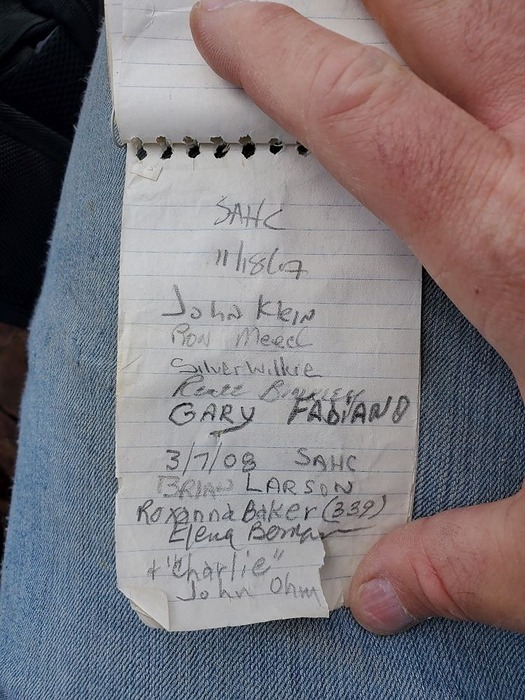 SAHC
11/18/07
John Klein
Ron Mead
SilverWillie
GARY FABIANO
3/7/08 SAHC
BRIAN LARSON
Roxanna Baker (339)
Elena
+ "Charlie"
John Ohm